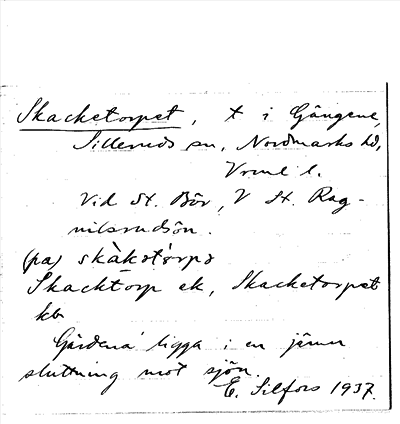 Skacketorpet, t i Gängene,
Silleruds sn, Nordmarks hd,
Vrml l.
Vid St. Bör, V St. Rag-
nilsrudsön.
(pa) skàkstɔ́rpə
Skacktorp ek, Skacketorpet
kb
Gårdena ligga i en jämn
sluttning mot sjön.
E. Silfors 1937.